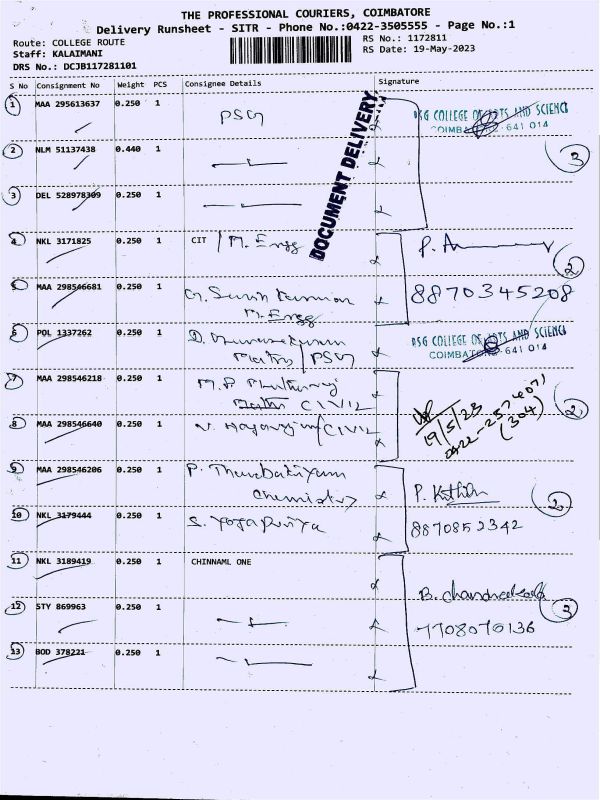 THE PROFESSIONAL COURIERS, COIMBATORE
Delivery Runsheet - SITR - Phone No.:0422-3505555 - Page No.:1
Route: COLLEGE ROUTE
RS No.: 1172811
Staff: KALAIMANI
RS Date: 19-May-2023
DRS No.: DCJB117281101
S No Consignment No Weight PCS Consignee Details Signature
1 MAA 295613637 0.250 1 PSG
PSG COLLEGE OF ARTS AND SCIENCE
COIMBATORE-641 014
DOCUMENT DELIVERY
2 NLM 51137438 0.440 1
3
3 DEL 528978309 0.250 1
4 NKL 3171825 0.250 1 CIT / M. Engg
2
5 MAA 298546681 0.250 1 G. Kumar 8870345208
M. Engg
6 POL 1337262 0.250 1 D.
PSG COLLEGE OF ARTS AND SCIENCE
Maths / PSG
COIMBATORE-641 014
7 MAA 298546218 0.250 1 M.P.
CIVIL
19/5/23
(304)
2
8 MAA 298546640 0.250 1 V. / CIVIL
9 MAA 298546206 0.250 1 P.
Chemistry
P.
2
10 NKL 3179444 0.250 1 S. Yogapriya 8870852342
11 NKL 3189419 0.250 1 CHINNAML ONE
B.
3
12 STY 869963 0.250 1 7708070136
13 BOD 378221 0.250 1